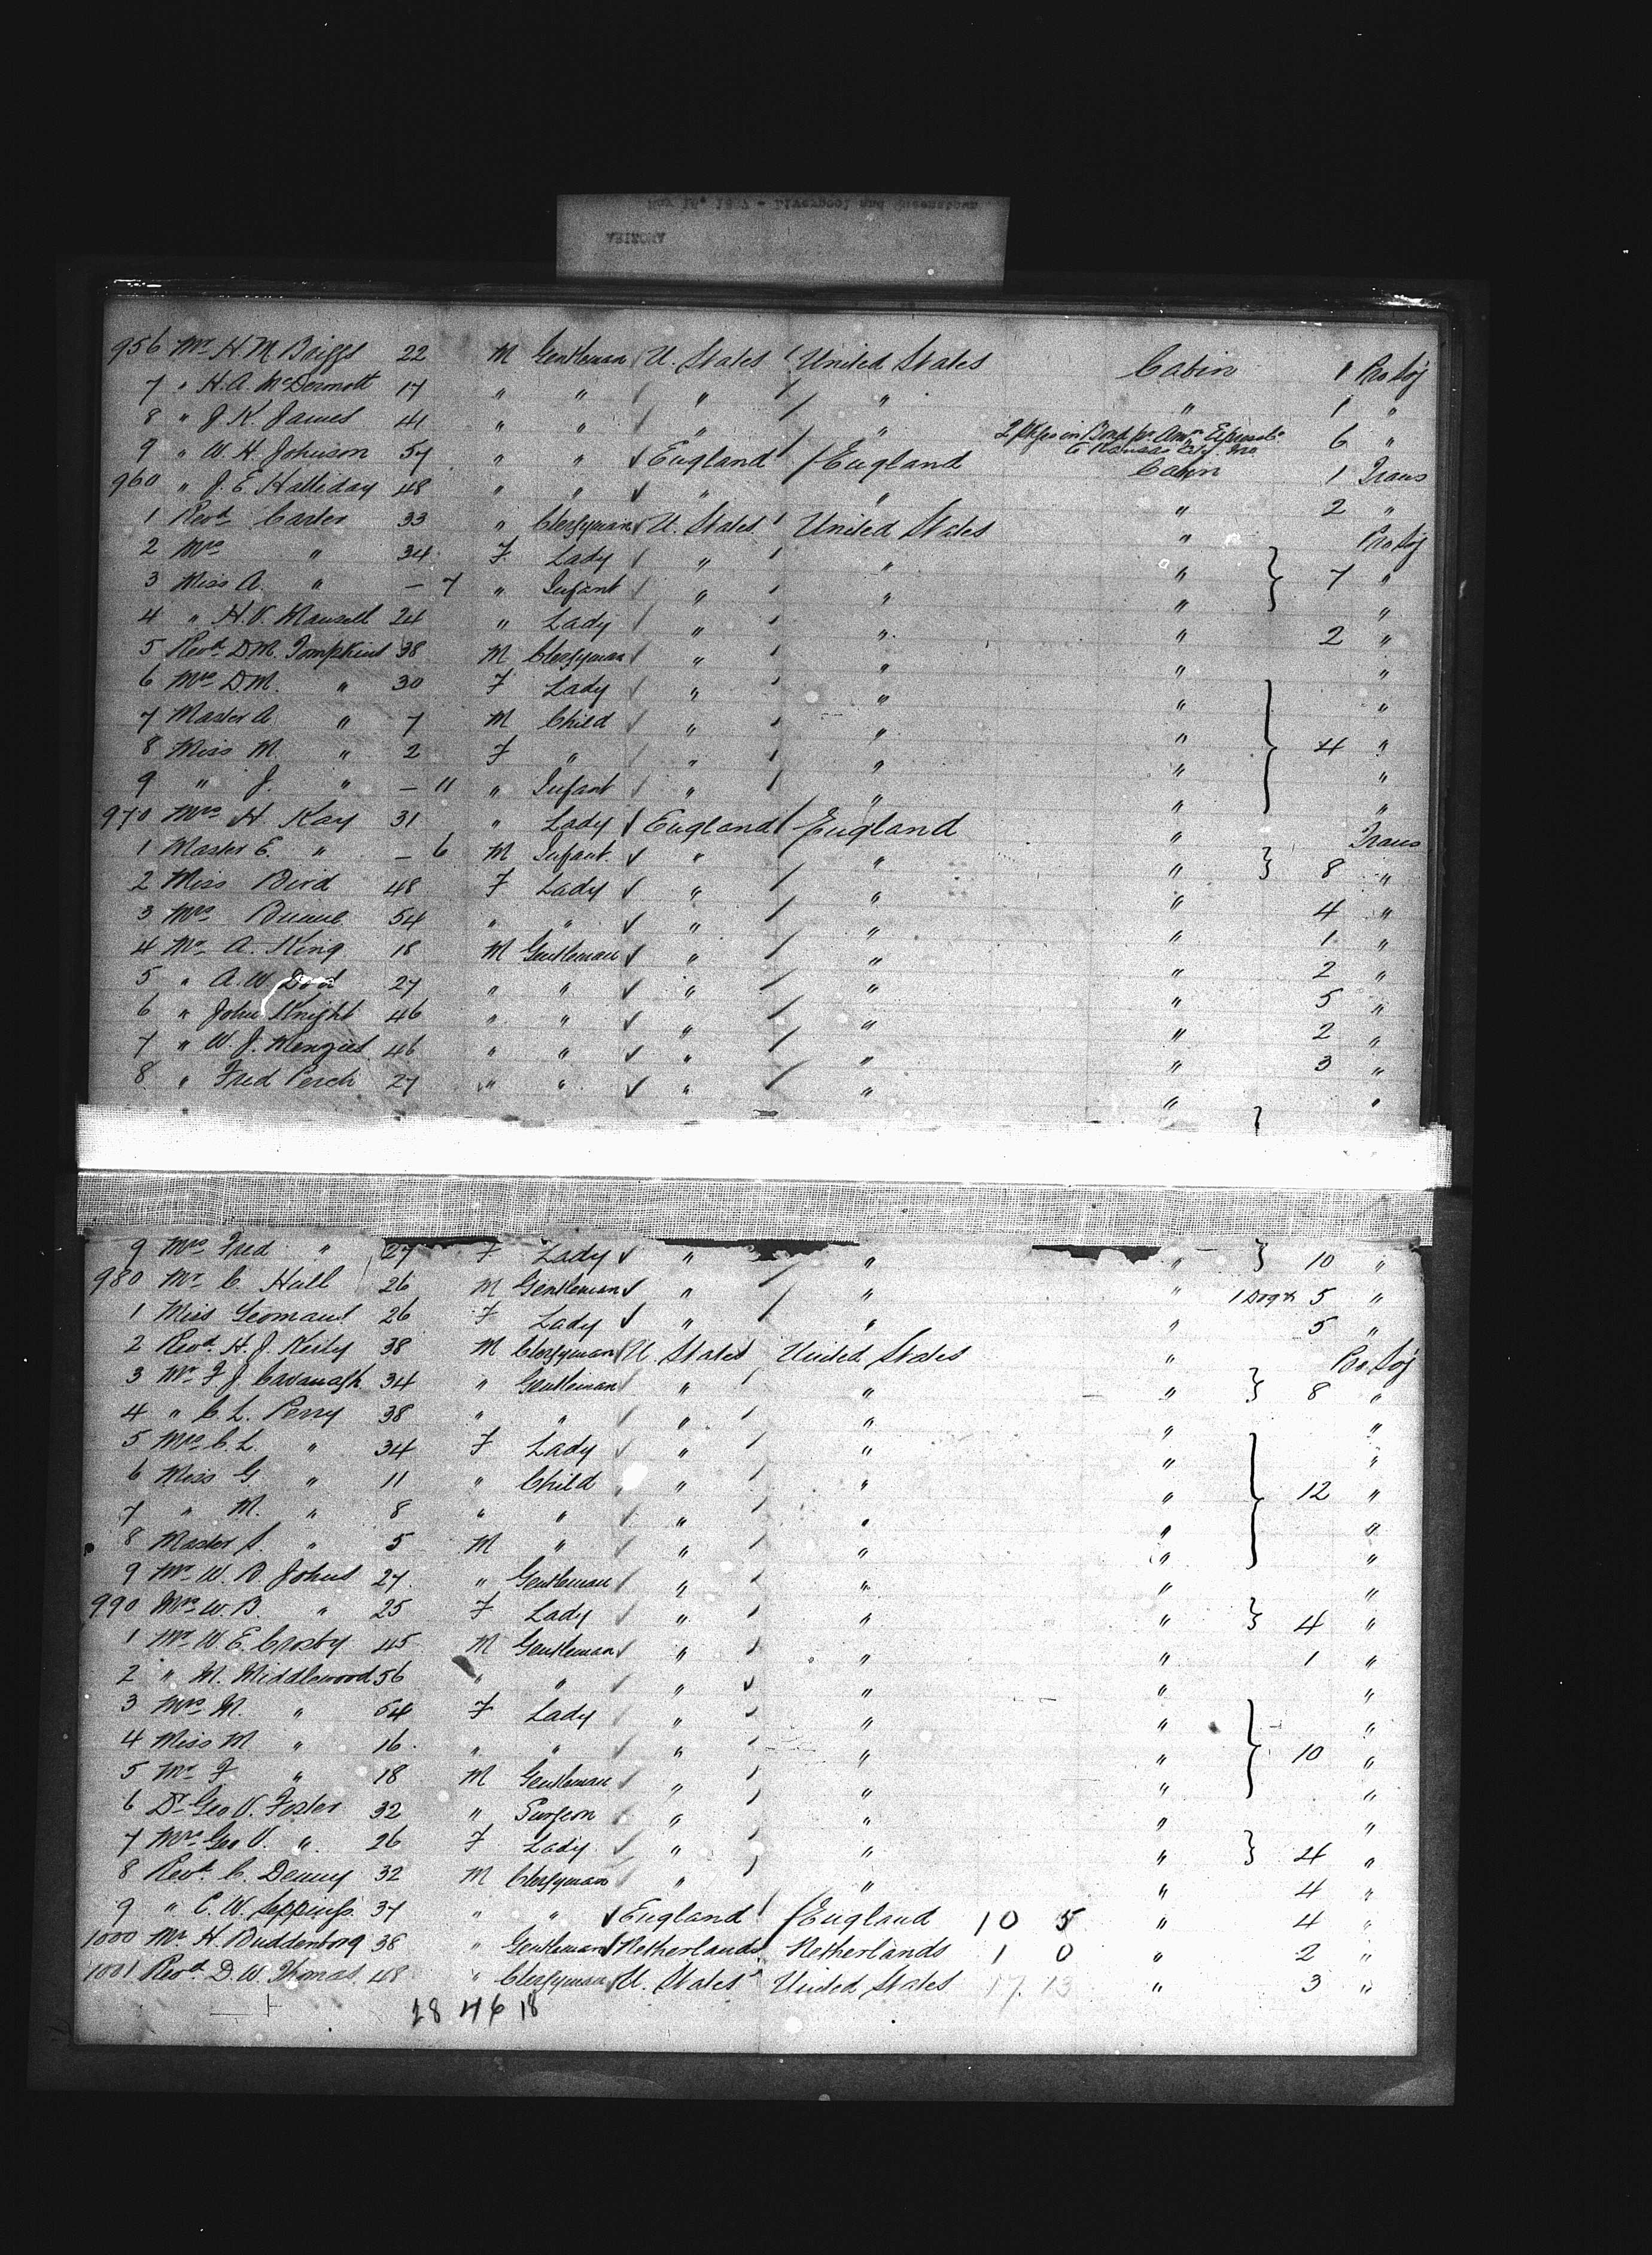 May 16" 1887 - Liverpool and Queenstown
ARIZONA
956 Mr H M Briggs 22 M Gentleman U. States United States Cabin 1 Pro Soj
7 " H. A. McDermott 17 " " " " " 1 "
8 " J K. James 41 " " " " 2 Pkges in Bond pr Amn Express Co to Kansas City Mo 6 "
9 " W. H. Johnson 57 " " England England Cabin 1 Trans
960 " J. E. Halliday 48 " " " " " 2 "
1 Revd Carter 33 " Clergyman U. States United States " Pro Soj
2 Mrs " 34 F Lady " " " } 7 "
3 Miss A. " - 7 " Infant " " " "
4 " H. V. Mansell 24 " Lady " " " 2 "
5 Revd D. M. Tompkins 38 M Clergyman " " " "
6 Mrs D. M. " 30 F Lady " " " "
7 Master A " 7 M Child " " " } 4 "
8 Miss M. " 2 F " " " " "
9 " J. " - 11 " Infant " " " "
970 Mrs H Kay 31 " Lady England England " Trans
1 Master E. " - 6 M Infant " " " } 8 "
2 Miss Bird 48 F Lady " " " 4 "
3 Mrs 54 " " " " " 1 "
4 Mr A. King 18 M Gentleman " " " 2 "
5 " A. W. 27 " " " " " 5 "
6 " John Knight 46 " " " " " 2 "
7 " W. J. Menzies 46 " " " " " 3 "
8 " Fred Perch 27 " " " " " "
9 Mrs Fred " 27 F Lady " " " } 10 "
980 Mr C. Hall 26 M Gentleman " " " 1 Dog & 5 "
1 Miss Yeomans 26 F Lady " " " 5 "
2 Revd H. J. Keily 38 M Clergyman U. States United States " Pro Soj
3 Mr F. J. Cavanagh 34 " Gentleman " " " } 8 "
4 " C L. Perry 38 " " " " " "
5 Mrs C. L. " 34 F Lady " " " "
6 Miss G. " 11 " Child " " " } 12 "
7 " M. " 8 " " " " " "
8 Master S. " 5 M " " " " "
9 Mr W. B Johns 27 " Gentleman " " " "
990 Mrs W. B. " 25 F Lady " " " } 4 "
1 Mr W. E. Crosby 45 M Gentleman " " " 1 "
2 " M. Middlewood 56 " " " " " "
3 Mrs M. " 54 F Lady " " " "
4 Miss M " 16 " " " " " } 10 "
5 Mr F " 18 M Gentleman " " " "
6 Dr Geo V. Foster 32 " Surgeon " " " "
7 Mrs Geo V. " 26 F Lady " " " } 4 "
8 Revd C. Denny 32 M Clergyman " " " 4 "
9 " C. W. Seppings 37 " " England England 10 5 " 4 "
1000 Mr H. Buddenborg 38 " Gentleman Netherlands Netherlands 1 0 " 2 "
1001 Revd D. W. Thomas 48 " Clergyman U. States United States 17 13 " 3 "
28 46 18